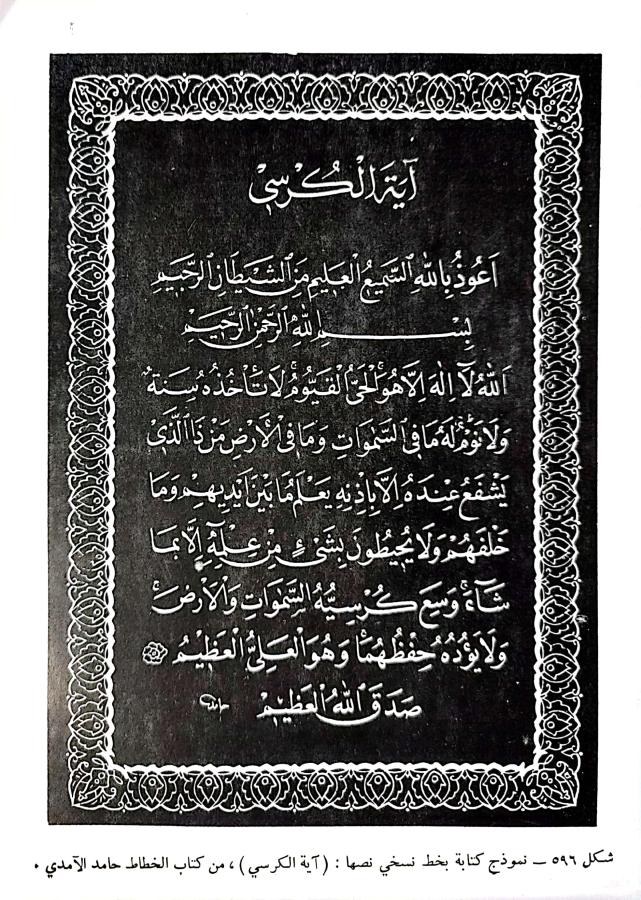 آية الكرسي
اَعُوذُ بِاللهِ السَّمِيعِ الْعَلِيمِ مِنَ الشَّيْطَانِ الرَّجِيمِ
بِسْمِ اللهِ الرَّحْمٰنِ الرَّحِيمِ
اَللهُ لَآ اِلٰهَ اِلَّا هُوَ الْحَيُّ الْقَيُّومُ لَا تَأْخُذُهُ سِنَةٌ
وَلَا نَوْمٌ لَهُ مَا فِى السَّمٰوَاتِ وَمَا فِى الْاَرْضِ مَنْ ذَا الَّذِى
يَشْفَعُ عِنْدَهُ اِلَّا بِاِذْنِهِ يَعْلَمُ مَا بَيْنَ اَيْدِيهِمْ وَمَا
خَلْفَهُمْ وَلَا يُحِيطُونَ بِشَىْءٍ مِنْ عِلْمِهِٓ اِلَّا بِمَا
شَآءَ وَسِعَ كُرْسِيُّهُ السَّمٰوَاتِ وَالْاَرْضَ
وَلَا يَؤُدُهُ حِفْظُهُمَا وَهُوَ الْعَلِىُّ الْعَظِيمُ
صَدَقَ اللهُ الْعَظِيمُ حامد
شكل ٥٩٦ ــ نموذج كتابة بخط نسخي نصها : ( آية الكرسي ) ، من كتاب الخطاط حامد الآمدي .